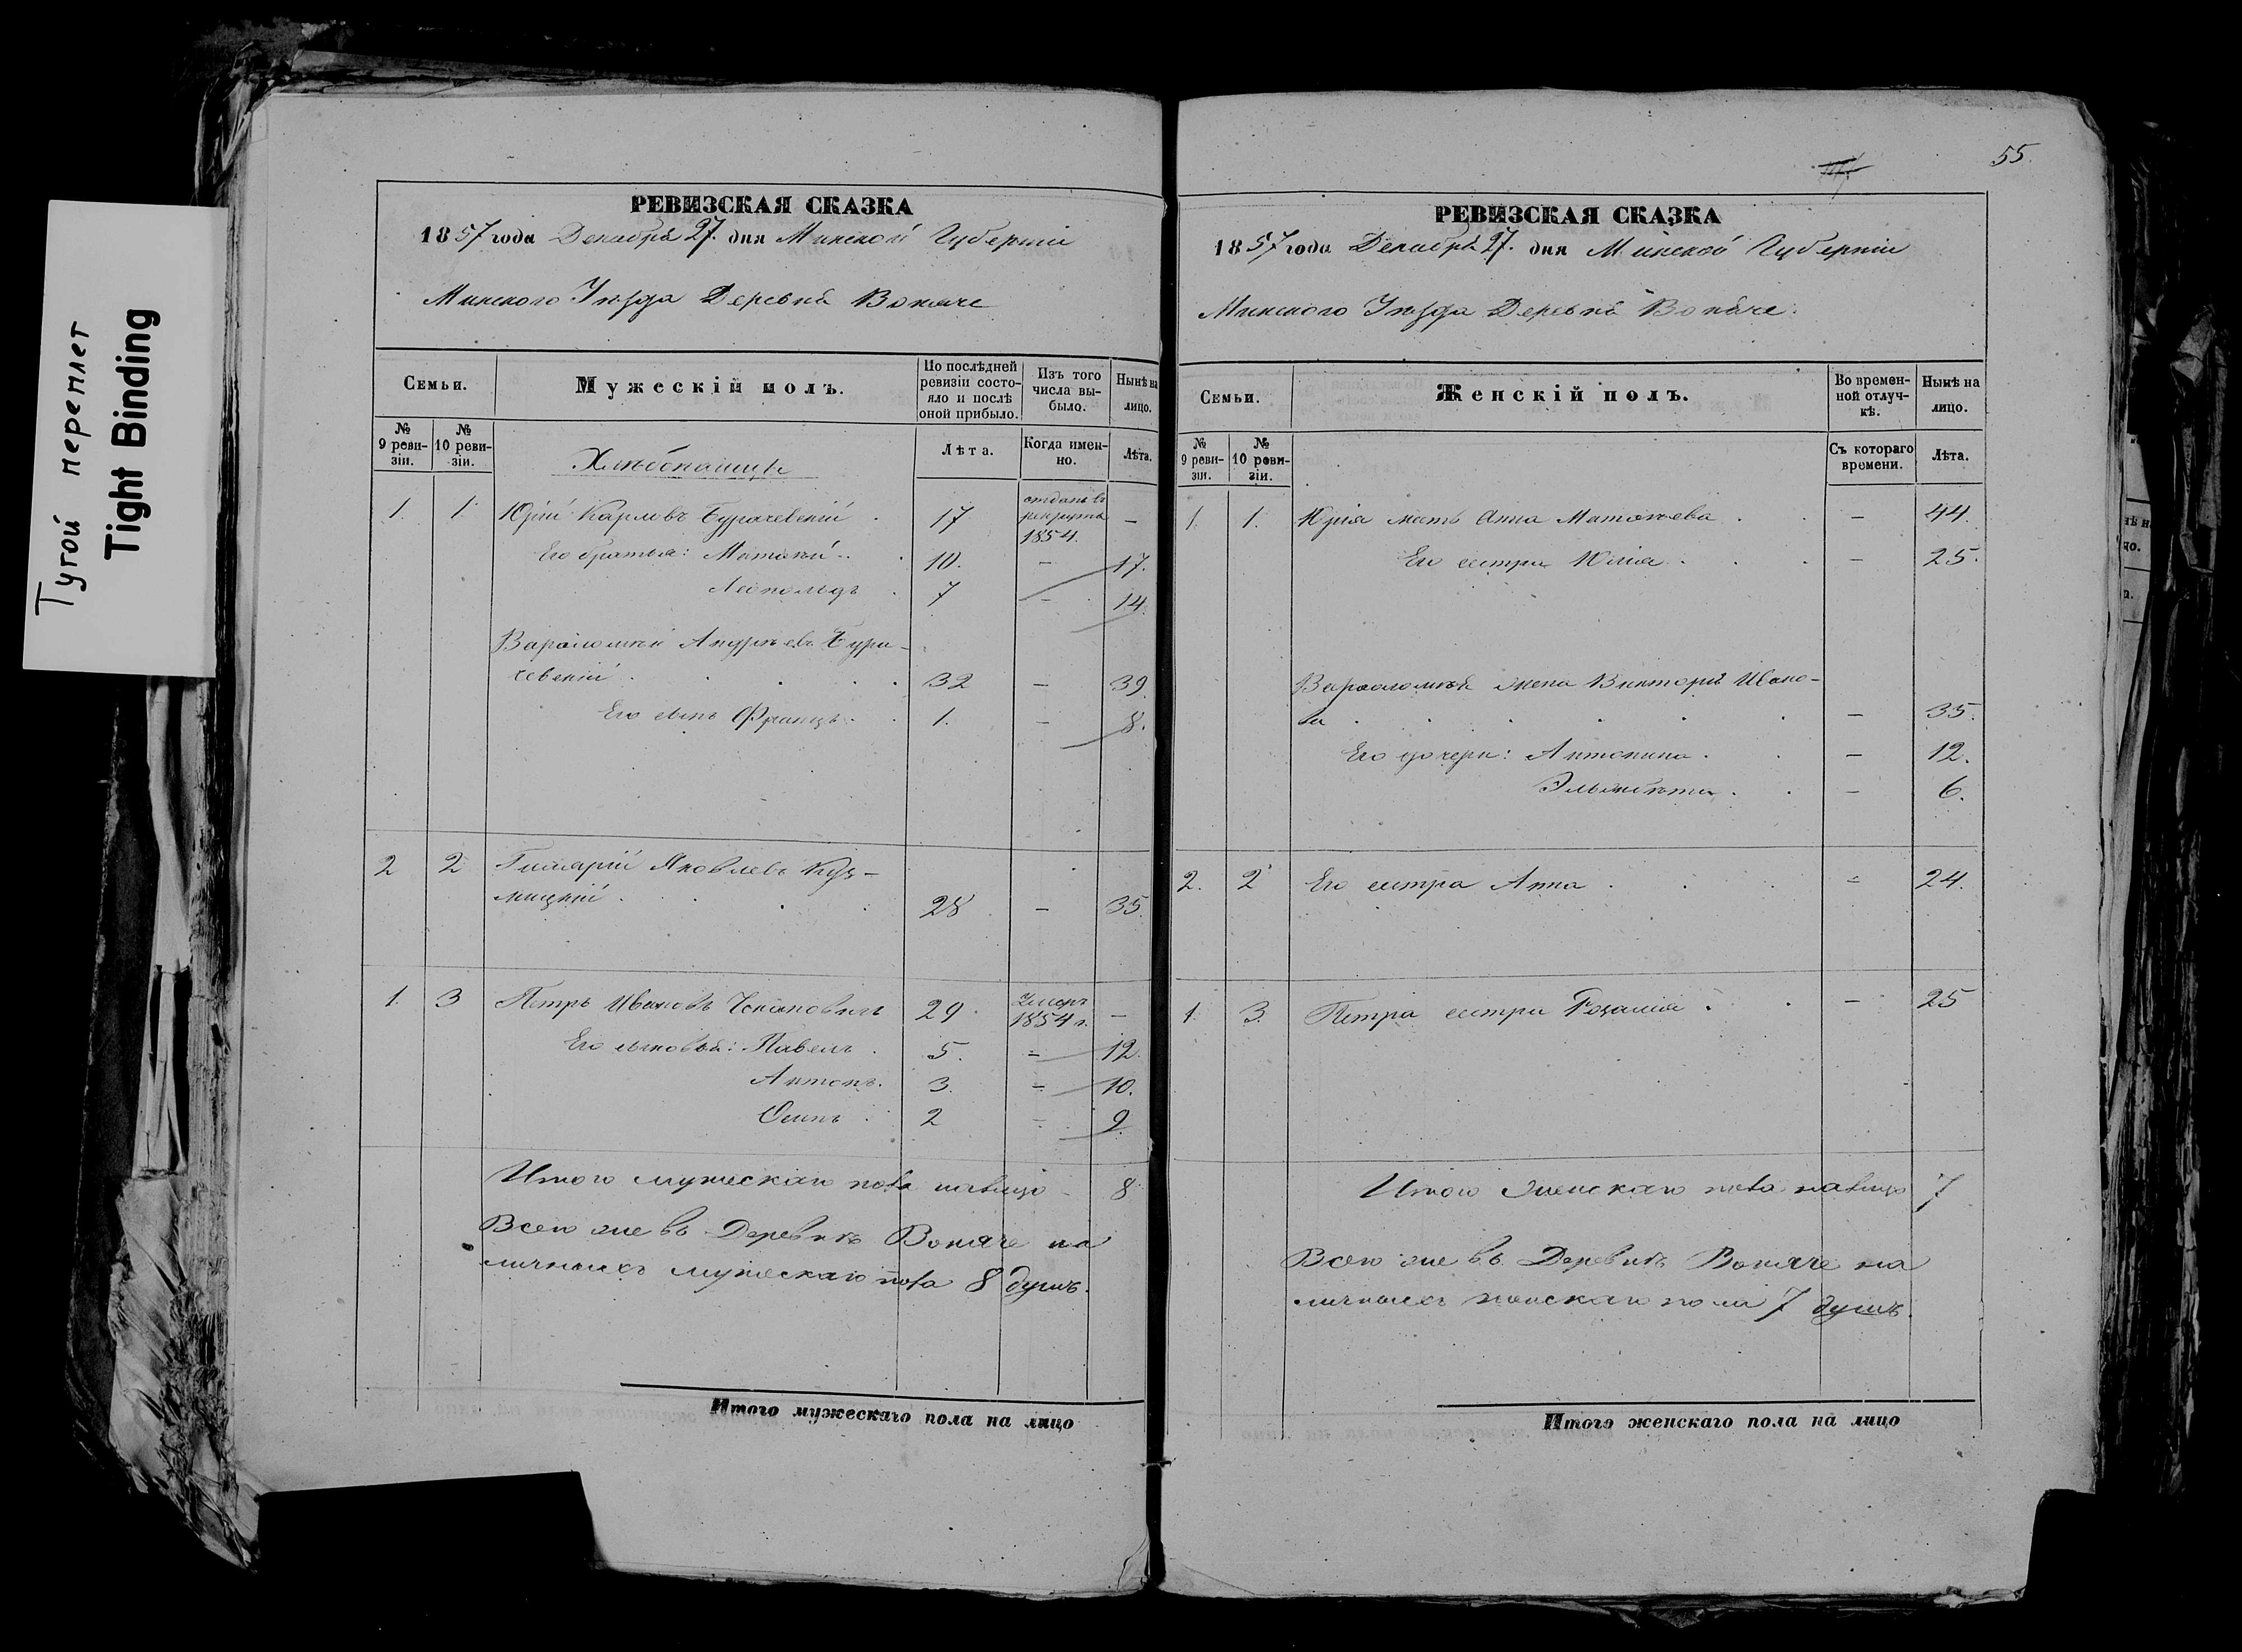 Тугой переплет
Tight Binding
РЕВИЗСКАЯ СКАЗКА
1857 года Декабря 27. дня Минской Губернiи
Минского Уѣзда Деревня Вокаче
Семьи.
Мужескiй полъ.
По послѣдней ревизiи состо-
яло и послѣ
оной прибыло.
Изъ того
числа вы-
было.
Нынѣ на
лицо.
№
9 реви-
зiи.
№
10 реви-
зiи.
Лѣта.
Когда имен-
но.
Лѣта.
1. 1. Юрiй Карловъ Бурачевскiй 17 отданъ въ рекруты 1854. –
Его братья: Матвѣй 10. – 17.
Леопольдъ 7 – 14.
Варѳоломѣй Андреевъ Бура-
чевскiй 32 – 39.
Его сынъ Францъ 1. – 8.
2 2 Гиляpiй Яковлевъ
28 – 35.
1. 3 Петръ Ивановъ 29 Умеръ 1854 г. –
Его сыновья: Павелъ 5. – 12.
Антонъ. 3. – 10.
Осипъ 2 – 9.
Итого мужескаго пола налицо 8
Всего же въ Деревнѣ Вокаче на
личныхъ мужескаго пола 8 душъ.
Итого мужескаго пола на лицо
55.
РЕВИЗСКАЯ СКАЗКА
1857 года Декабря 27. дня Минской Губернiи
Минского Уѣзда Деревня Вокаче.
Семьи.
Женскiй полъ.
Во времен-
ной отлуч-
кѣ.
Нынѣ на
лицо.
№
9 реви-
зiи.
№
10 реви-
зiи.
Съ котораго
времени.
Лѣта.
1. 1. Юрiя мать Анна Матвѣева – 44.
Его сестра Юлiя – 25.
Варѳоломѣя жена Викторiя Ивано-
ва – 35.
Его дочери: Антонина – 12.
Эльжбѣта – 6.
2. 2 Его сестра Анна – 24.
1. 3. Петра сестра Розалiя – 25
Итого женскаго пола налицо 7
Всего же въ Деревнѣ Вокаче на
личныхъ женскаго пола 7 душъ.
Итого женскаго пола на лицо